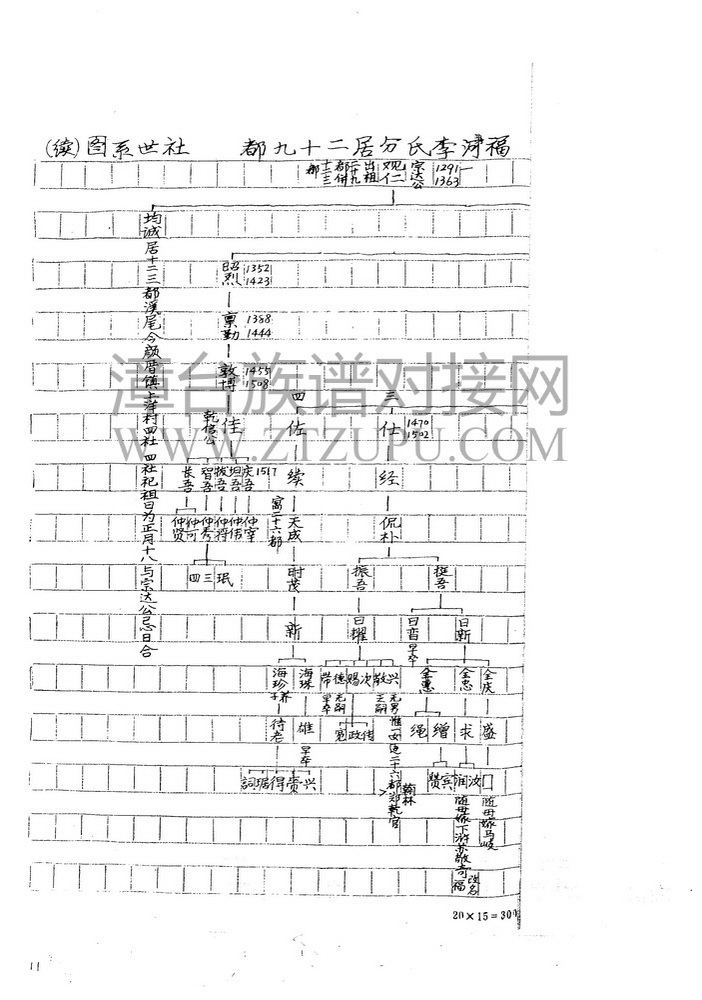 福河李氏分居二十九都　社世系图(续)
宗达公 1291—1363
观仁二
出租
二十九
都併
十二三都
均诚居十二三都溪尾今颜厝镇上洋村四社 四社祀祖日为正月十八与宗达公忌日合
昭烈 1352 1423
禀勤 1388 1444
敦博 1455 1508
三 仕 1470 1502
四 佐
佳
乾信公
经
续
庆吾 1517
坦吾
牧吾
智吾
长吾
侃朴
天成
富二十六都
仲宰
仲伟
仲将
仲秀
仲可
仲贤
挺吾
振吾
时茂
珉
三
四
日新
日晋 早卒
日耀
新
全庆
全忠
全惠
兴
敬
次
赐
德 无嗣
带 早卒
海珠
海珍 养子
盛
求
增
绳
无男惟一女适二十六都郑乾官
翰林
传
政
冕
雄 早卒
待老
汝
润
宾
赞
兴
贵
得
琚
詞
随母嫁马岐
随母嫁下浒苏敬奇
改名福
20×15=300
11
漳台族谱对接网
WWW.ZTZUPU.COM